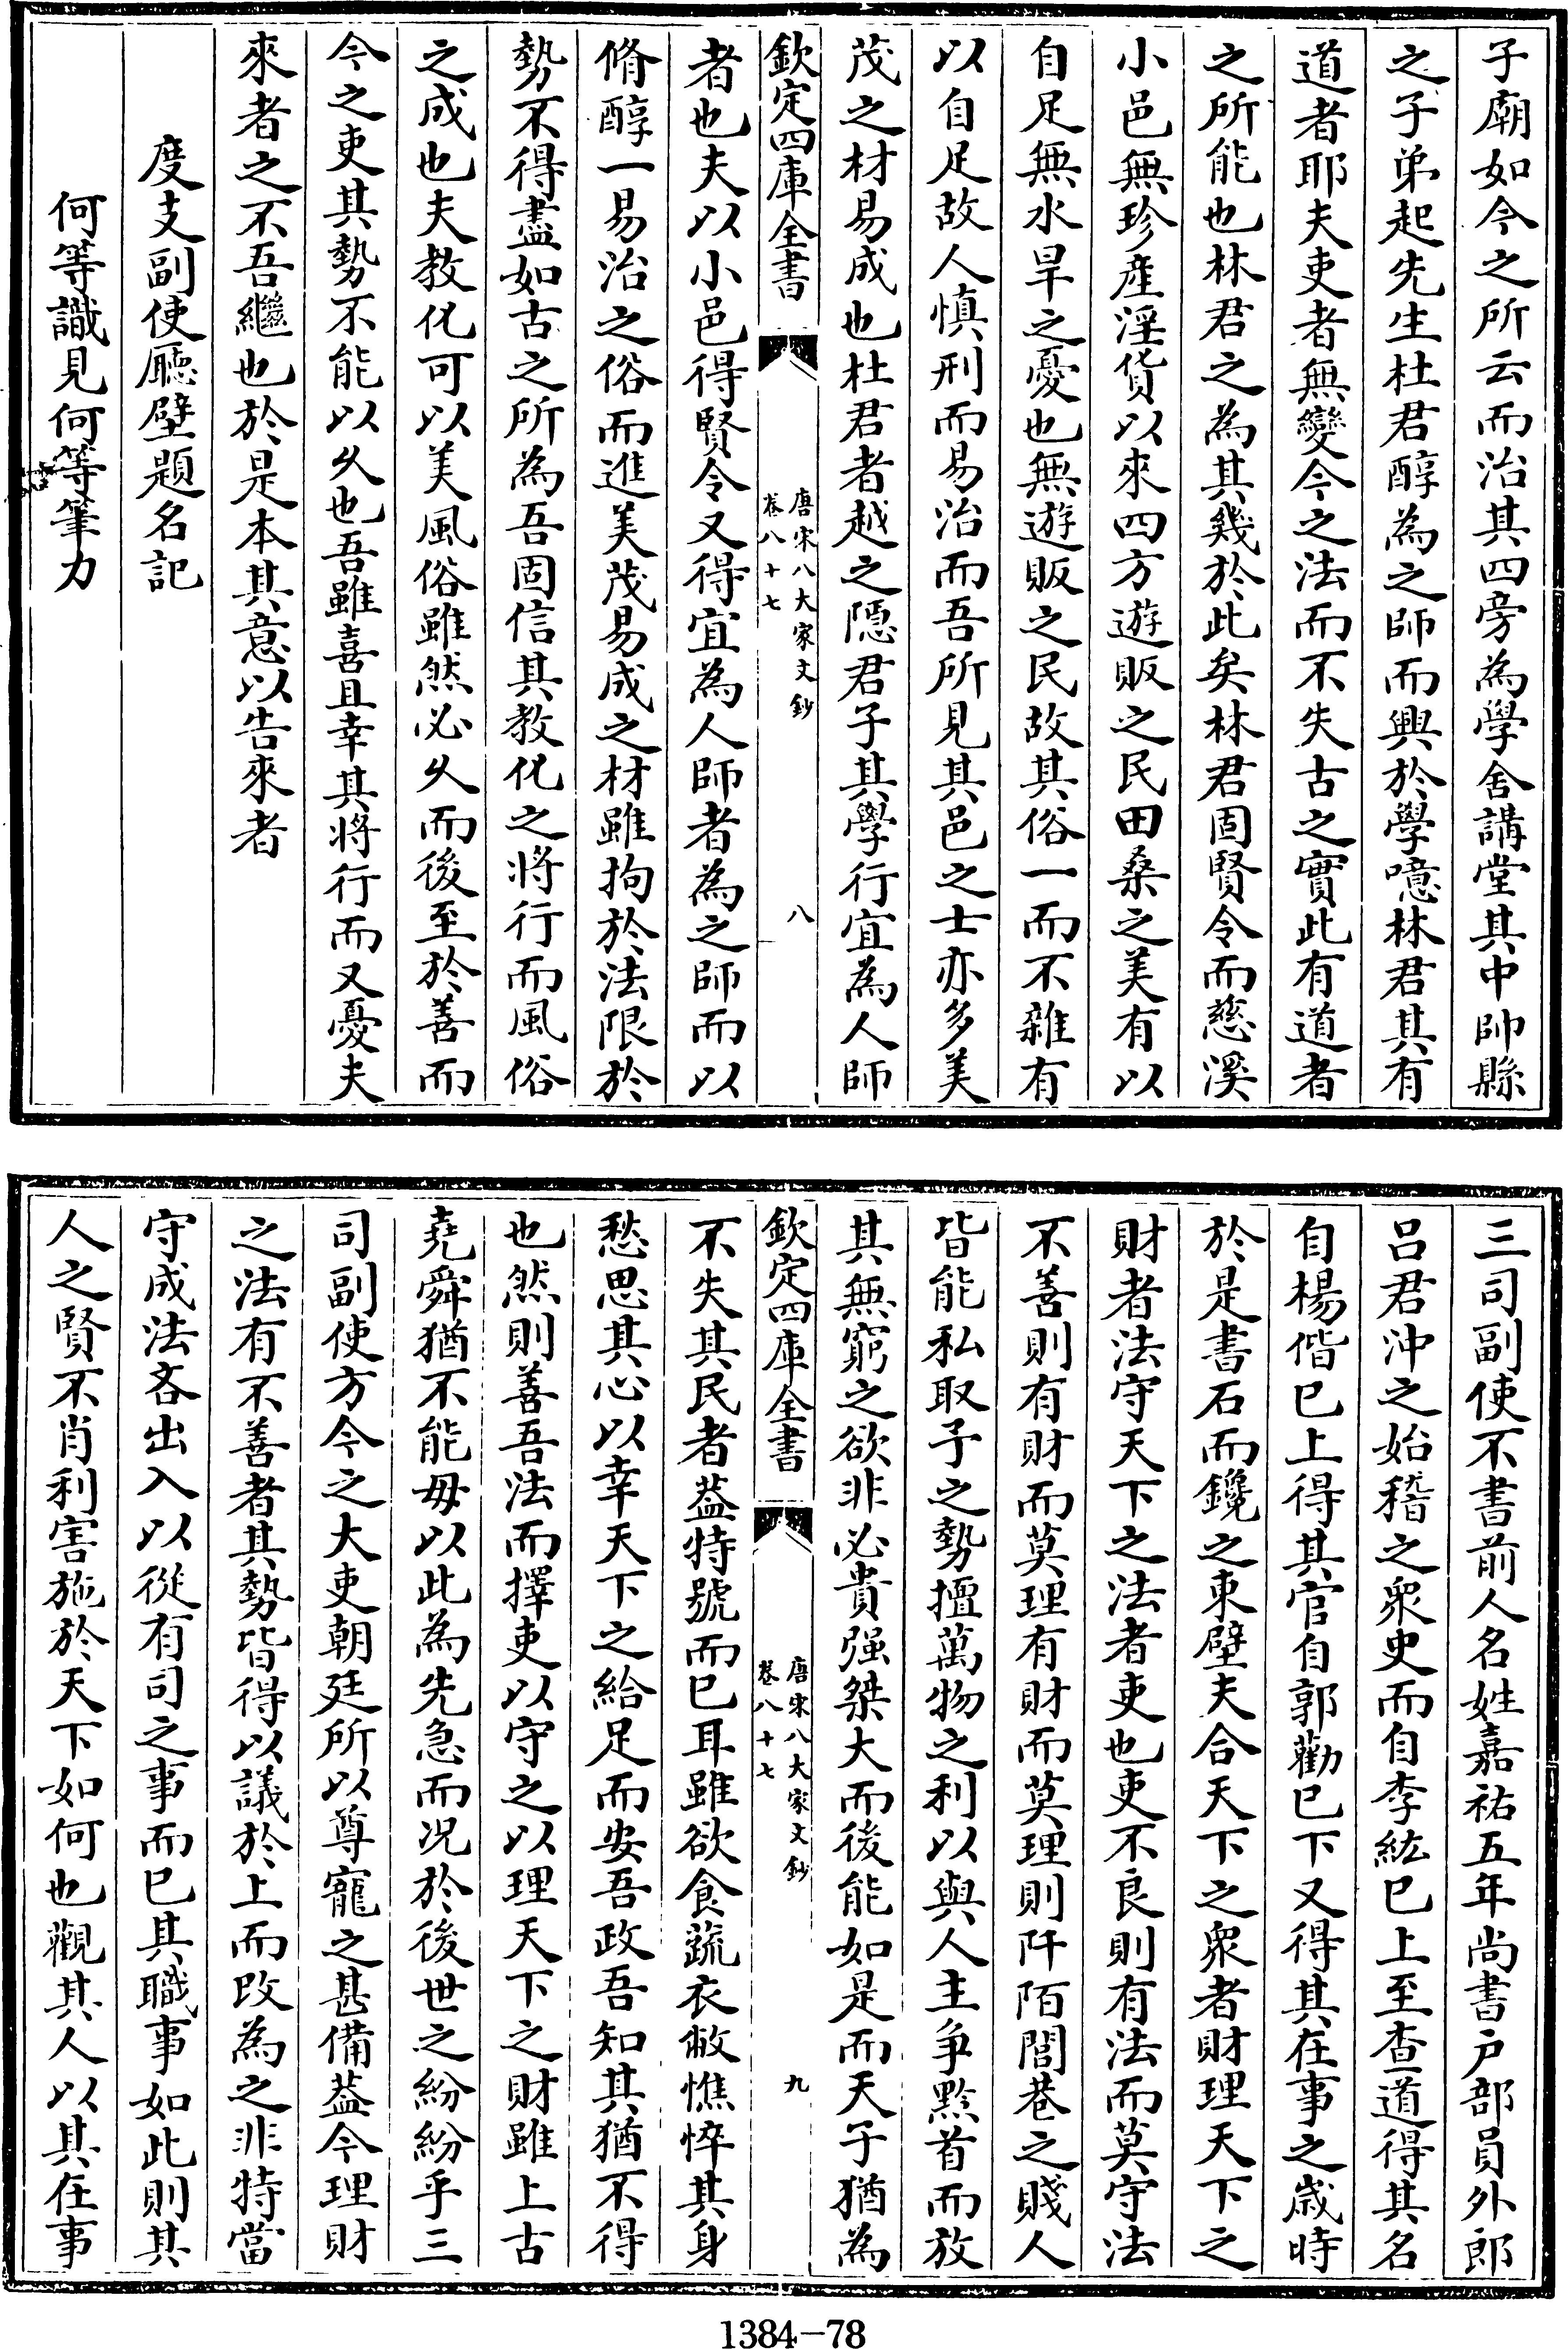 子廟如今之所云而治其四旁為學舍講堂其中帥縣
之子弟起先生杜君醇為之師而興於學噫林君其有
道者耶夫吏者無變今之法而不失古之實此有道者
之所能也林君之為其幾於此矣林君固賢令而慈溪
小邑無珍產淫貨以來四方遊販之民田桑之美有以
自足無水旱之憂也無遊販之民故其俗一而不雜有
以自足故人慎刑而易治而吾所見其邑之士亦多美
茂之材易成也杜君者越之隱君子其學行宜為人師
欽定四庫全書
唐宋八大家文鈔
卷八十七
八
者也夫以小邑得賢令又得宜為人師者為之師而以
脩醇一易治之俗而進美茂易成之材雖拘於法限於
勢不得盡如古之所為吾固信其教化之將行而風俗
之成也夫教化可以美風俗雖然必久而後至於善而
今之吏其勢不能以久也吾雖喜且幸其將行而又憂夫
來者之不吾繼也於是本其意以告來者
度支副使廳壁題名記
何等識見何等筆力
三司副使不書前人名姓嘉祐五年尚書戶部員外郎
呂君沖之始稽之衆史而自李紘已上至查道得其名
自楊偕已上得其官自郭勸已下又得其在事之歲時
於是書石而鑱之東壁夫合天下之衆者財理天下之
財者法守天下之法者吏也吏不良則有法而莫守法
不善則有財而莫理有財而莫理則阡陌閭巷之賤人
皆能私取予之勢擅萬物之利以與人主爭黔首而放
其無窮之欲非必貴强桀大而後能如是而天子猶為
欽定四庫全書
唐宋八大家文鈔
卷八十七
九
不失其民者葢特號而已耳雖欲食蔬衣敝憔悴其身
愁思其心以幸天下之給足而安吾政吾知其猶不得
也然則善吾法而擇吏以守之以理天下之財雖上古
堯舜猶不能毋以此為先急而况於後世之紛紛乎三
司副使方今之大吏朝廷所以尊寵之甚備葢今理財
之法有不善者其勢皆得以議於上而改為之非特當
守成法吝出入以從有司之事而已其職事如此則其
人之賢不肖利害施於天下如何也觀其人以其在事
1384-78